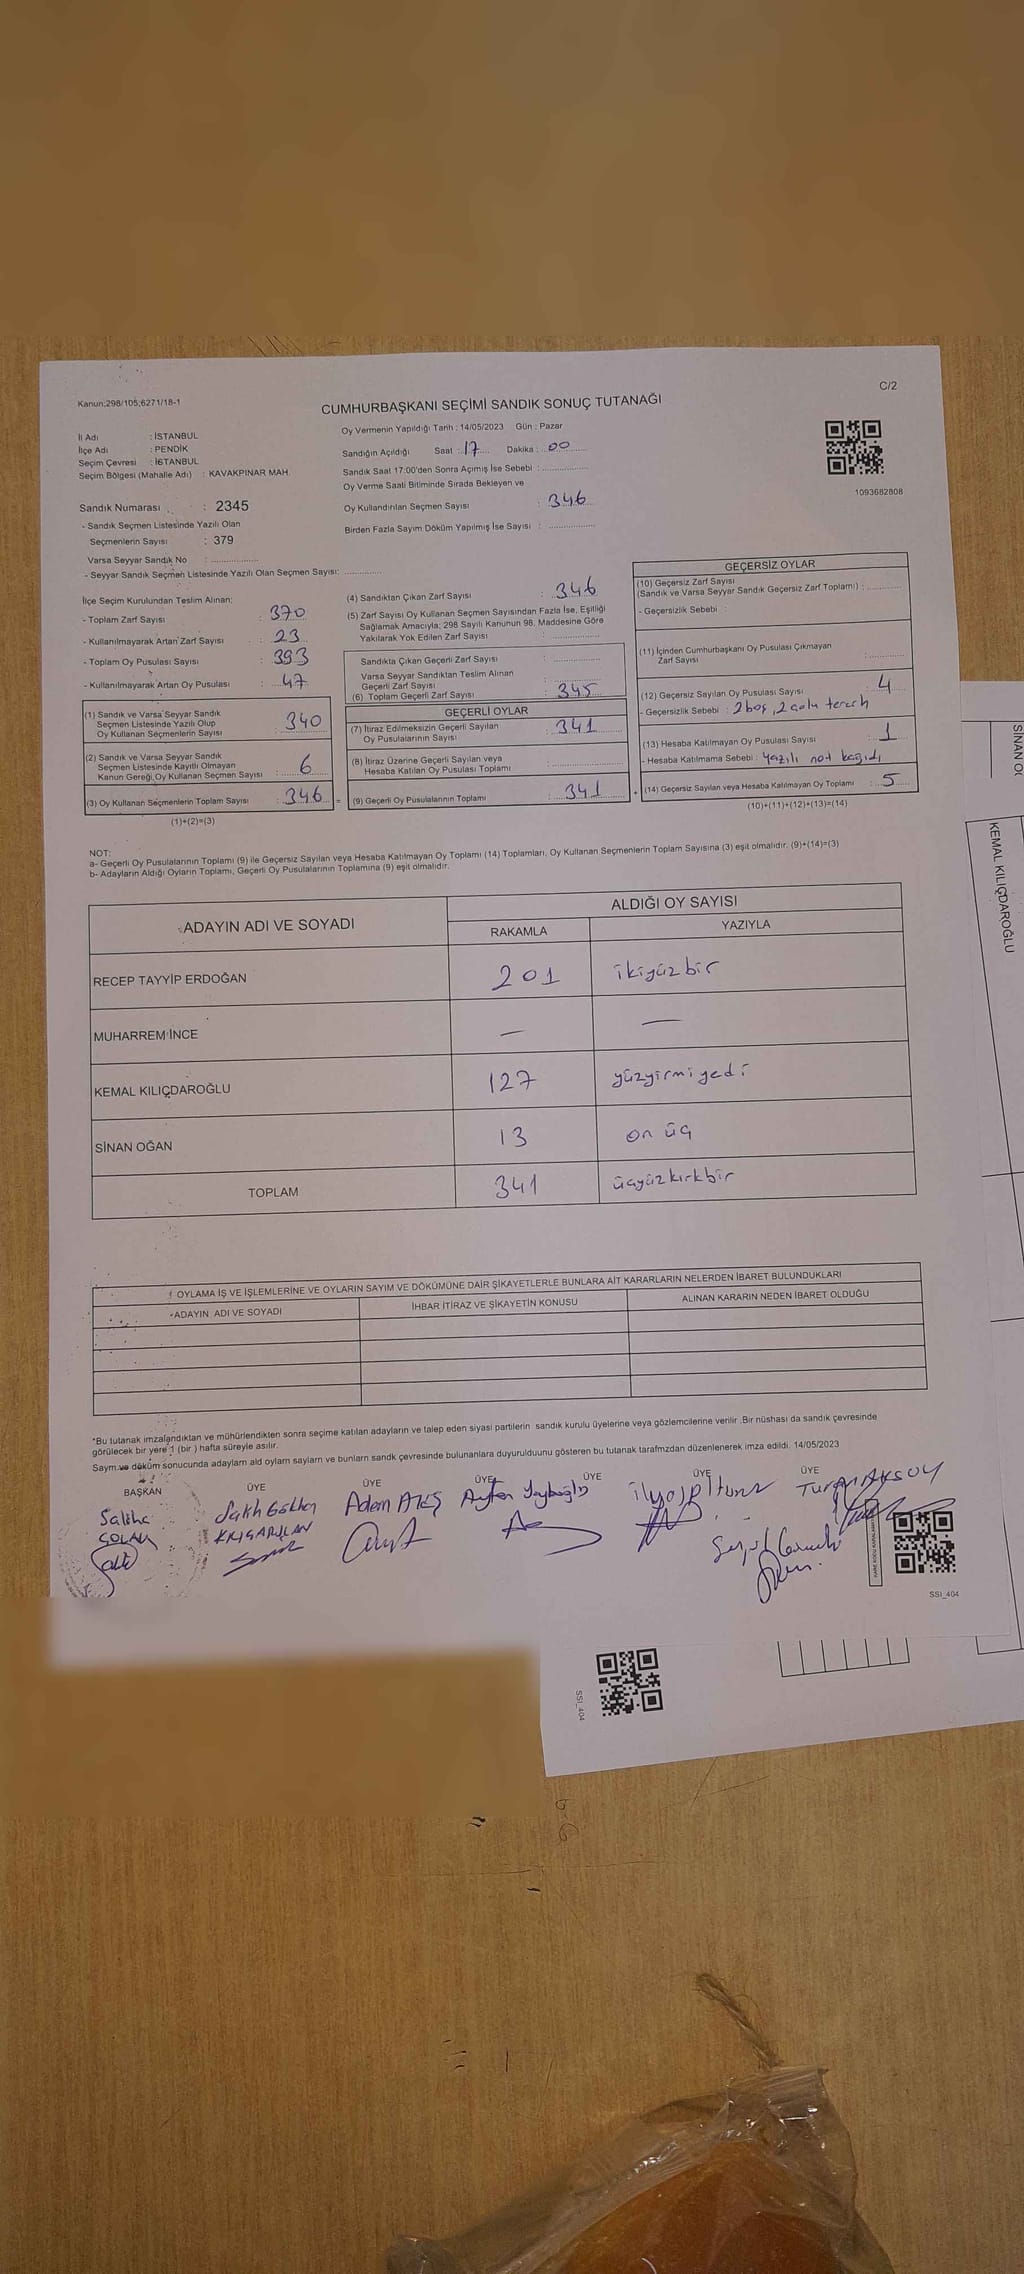 Kanun:298/105;6271/18-1
C/2
CUMHURBAŞKANI SEÇİMİ SANDIK SONUÇ TUTANAĞI
İl Adı : İSTANBUL
İlçe Adı : PENDİK
Seçim Çevresi : İSTANBUL
Seçim Bölgesi (Mahalle Adı) : KAVAKPINAR MAH.
Oy Vermenin Yapıldığı Tarih : 14/05/2023 Gün : Pazar
Sandığın Açıldığı Saat : 17 Dakika : 00
Sandık Saat 17:00'den Sonra Açımış İse Sebebi :
Oy Verme Saati Bitiminde Sırada Bekleyen ve
Oy Kullandırılan Seçmen Sayısı : 346
Birden Fazla Sayım Döküm Yapılmış İse Sayısı :
1093682808
Sandık Numarası : 2345
- Sandık Seçmen Listesinde Yazılı Olan
Seçmenlerin Sayısı : 379
Varsa Seyyar Sandık No :
- Seyyar Sandık Seçmen Listesinde Yazılı Olan Seçmen Sayısı:
İlçe Seçim Kurulundan Teslim Alınan;
- Toplam Zarf Sayısı : 370
- Kullanılmayarak Artan Zarf Sayısı : 23
- Toplam Oy Pusulası Sayısı : 393
- Kullanılmayarak Artan Oy Pusulası : 47
(1) Sandık ve Varsa Seyyar Sandık
Seçmen Listesinde Yazılı Olup
Oy Kullanan Seçmenlerin Sayısı : 340
(2) Sandık ve Varsa Seyyar Sandık
Seçmen Listesinde Kayıtlı Olmayan
Kanun Gereği Oy Kullanan Seçmen Sayısı : 6
(3) Oy Kullanan Seçmenlerin Toplam Sayısı : 346 =
(1)+(2)=(3)
(4) Sandıktan Çıkan Zarf Sayısı : 346
(5) Zarf Sayısı Oy Kullanan Seçmen Sayısından Fazla İse, Eşitliği
Sağlamak Amacıyla; 298 Sayılı Kanunun 98. Maddesine Göre
Yakılarak Yok Edilen Zarf Sayısı :
Sandıkta Çıkan Geçerli Zarf Sayısı :
Varsa Seyyar Sandıktan Teslim Alınan
Geçerli Zarf Sayısı :
(6) Toplam Geçerli Zarf Sayısı : 345
GEÇERLİ OYLAR
(7) İtiraz Edilmeksizin Geçerli Sayılan
Oy Pusulalarının Sayısı : 341
(8) İtiraz Üzerine Geçerli Sayılan veya
Hesaba Katılan Oy Pusulası Toplamı :
(9) Geçerli Oy Pusulalarının Toplamı : 341 +
GEÇERSİZ OYLAR
(10) Geçersiz Zarf Sayısı
(Sandık ve Varsa Seyyar Sandık Geçersiz Zarf Toplamı) :
- Geçersizlik Sebebi :
(11) İçinden Cumhurbaşkanı Oy Pusulası Çıkmayan
Zarf Sayısı :
(12) Geçersiz Sayılan Oy Pusulası Sayısı : 4
- Geçersizlik Sebebi : 2 boş, 2 çoklu tercih
(13) Hesaba Katılmayan Oy Pusulası Sayısı : 1
- Hesaba Katılmama Sebebi : Yazılı not kağıdı
(14) Geçersiz Sayılan veya Hesaba Katılmayan Oy Toplamı : 5
(10)+(11)+(12)+(13)=(14)
NOT:
a- Geçerli Oy Pusulalarının Toplamı (9) ile Geçersiz Sayılan veya Hesaba Katılmayan Oy Toplamı (14) Toplamları, Oy Kullanan Seçmenlerin Toplam Sayısına (3) eşit olmalıdır. (9)+(14)=(3)
b- Adayların Aldığı Oyların Toplamı, Geçerli Oy Pusulalarının Toplamına (9) eşit olmalıdır.
ADAYIN ADI VE SOYADI
ALDIĞI OY SAYISI
RAKAMLA YAZIYLA
RECEP TAYYİP ERDOĞAN 201 ikiyüzbir
MUHARREM İNCE — —
KEMAL KILIÇDAROĞLU 127 yüzyirmiyedi
SİNAN OĞAN 13 on üç
TOPLAM 341 üçyüzkırkbir
OYLAMA İŞ VE İŞLEMLERİNE VE OYLARIN SAYIM VE DÖKÜMÜNE DAİR ŞİKAYETLERLE BUNLARA AİT KARARLARIN NELERDEN İBARET BULUNDUKLARI
ADAYIN ADI VE SOYADI İHBAR İTİRAZ VE ŞİKAYETİN KONUSU ALINAN KARARIN NEDEN İBARET OLDUĞU
*Bu tutanak imzalandıktan ve mühürlendikten sonra seçime katılan adayların ve talep eden siyasi partilerin sandık kurulu üyelerine veya gözlemcilerine verilir .Bir nüshası da sandık çevresinde
görülecek bir yere 1 (bir ) hafta süreyle asılır.
Saym ve döküm sonucunda adaylam ald oylam saylam ve bunlarn sandk çevresinde bulunanlara duyurulduunu gösteren bu tutanak tarafmzdan düzenlenerek imza edildi. 14/05/2023
BAŞKAN ÜYE ÜYE ÜYE ÜYE ÜYE ÜYE
Saliha
ÇOLAK
Salih Gökhan
Adem ATEŞ
Turan AKSOY
SSI_404
SSI_404
KEMAL KILIÇDAROĞLU